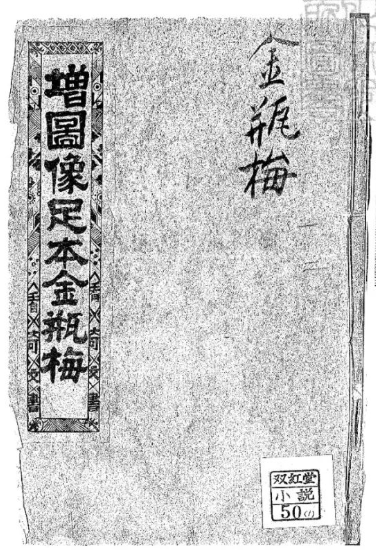 增圖像足本金瓶梅
金瓶梅
一
二
双紅堂
小説
50